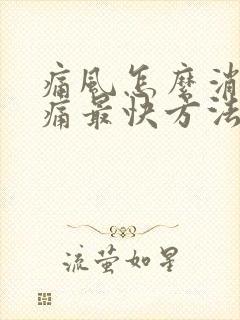 痛风怎麼消
痛最快方法
流萤如星